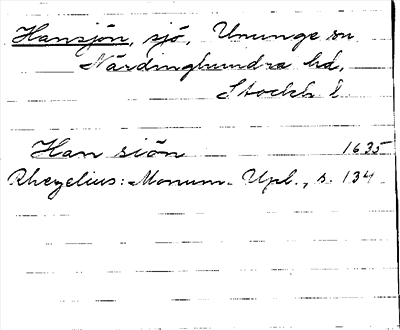 Hansjön, sjö, Ununge sn
Närdinghundra hd,
Stockh l.
Han siön 1635
Rhezelius: Monum. Upl., s. 134